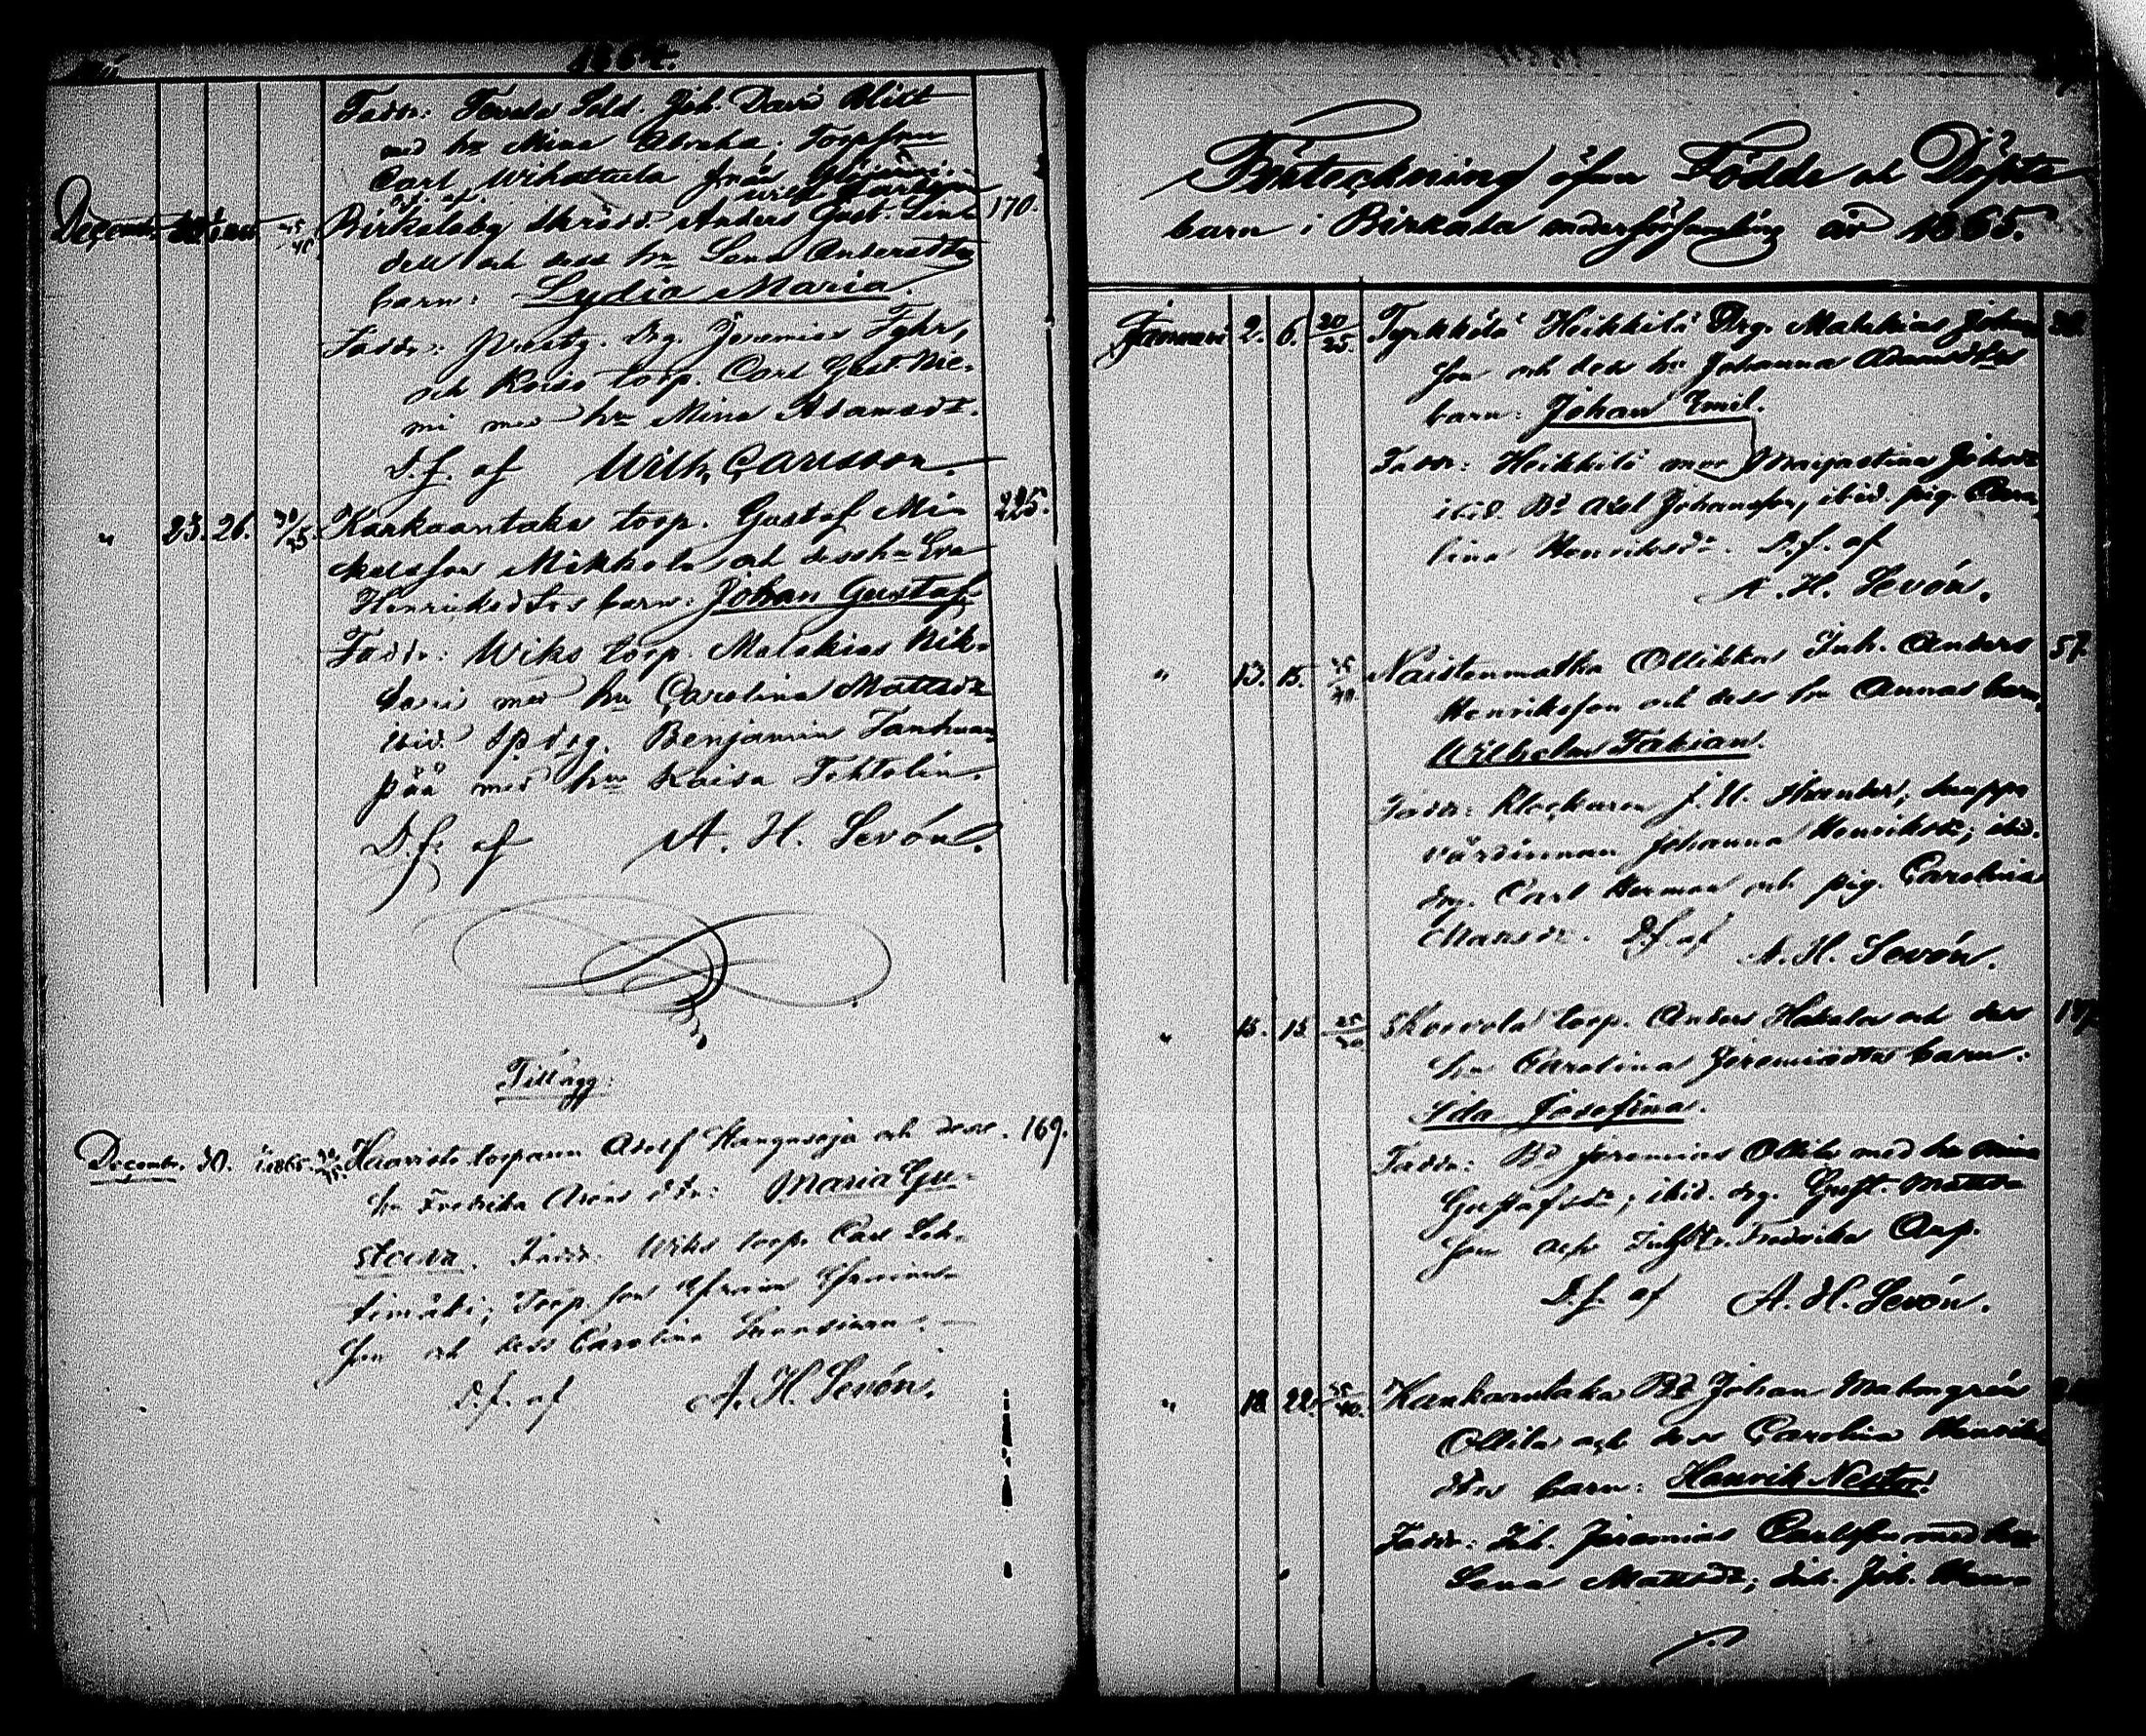 1864.
Fadd: Tavela Sold. Joh. David Blitt
med hu Mina Abraha; Torpson
Carl Wihattula från
D.f. af Wilh. Carlsson
Decemb. Birkalaby Skrädd. Anders Gust. Lin- 170.
dell och dess hu Lena Andersdtrs
barn: Lydia Maria.
Fadd: Prestg. Drg. Jeremias Fyhr,
och Reiso torp. Carl Gust. Nie-
mi med hu Mina Adamsdr.
D.f. af Wilh. Carlsson.
" 23. 26. 30/35. Kankaantaka torp. Gustaf Mi- 225.
chelsson Mikkola och dess hu Eva
Henricksdtrs barn: Johan Gustaf.
Fadd: Wiks torp. Malakias Nik-
med hu Carolina Mattsdr
ibid. Spdrg. Benjamin Tanhuan-
pää med hu Kaisa Tehtolin.
D.f. af A. H. Sevón.
Tillägg:
Decemb. 30. 1 1865. 30/35 Haavisto torparen Adolf Hanguoja och dess 169.
hu Fredrika Arons dtr: Maria Gu-
stava. Fadd: Wiks torp. Carl Leh-
timäki; Torp. son Efraim Efraims-
son och dess Carolina
D.f. af A. H. Sevón.
Förteckning öfver Födde och Döpte
barn i Birkala moderförsamling år 1865.
Januari 2. 6. 20/25. Tyrkkölä Heikkilä Drg. Malakias Johans
son och dess hu Johanna Adamsdtrs
barn: Johan Emil.
Fadd: Heikkilä mor Maijastina Johsdr
ibid. Bd Axel Johansson, ibid. pig. Caro-
lina Henriksdr. D.f. af
A. H. Sevón.
" 13. 15. 35/40. Naistenmatka Ollikka Inh. Anders 57.
Henriksson och dess hu Annas barn,
Wilhelm Fabian.
Fadd: Klockaren J. U. Strander; Knuppo
värdinnan Johanna Henriksdr; ibid.
drg. Carl Herman och pig. Carolina
Matsdr. D.f. af A. H. Sevón.
" 15. 15. 25/30 Korvola torp. Anders Hakala och dess
hu Carolina Jeremiædtrs barn:
Ida Josefina.
Fadd: Bd Jeremias Ollila med hu Mina
Gustafsdr; ibid. drg. Gust. Matts-
son och Inhdtr. Fredrika Ansp.
D.f. af A. H. Sevón.
" 18. 22. 35/40. Kankaantaka Bd Johan Malmgrén
Ollila och dess Carolina Henriks
dtrs barn: Henrik Nestor.
Fadd: Inh. Jeremias Carlsson med hu
Lena Mattsdr; Inh. Joh. Herm-